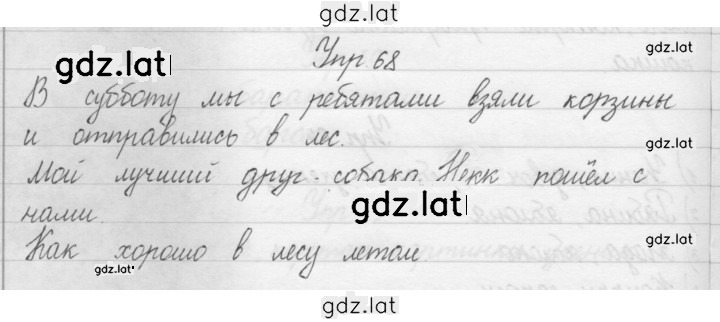 gdz.lat
Упр 68
gdz.lat
gdz.lat
В субботу мы с ребятами взяли корзины
и отправились в лес.
gdz.lat
Мой лучший друг - собака Некк пошёл с
нами.
gdz.lat
gdz.lat
Как хорошо в лесу летом
gdz.lat
gdz.lat